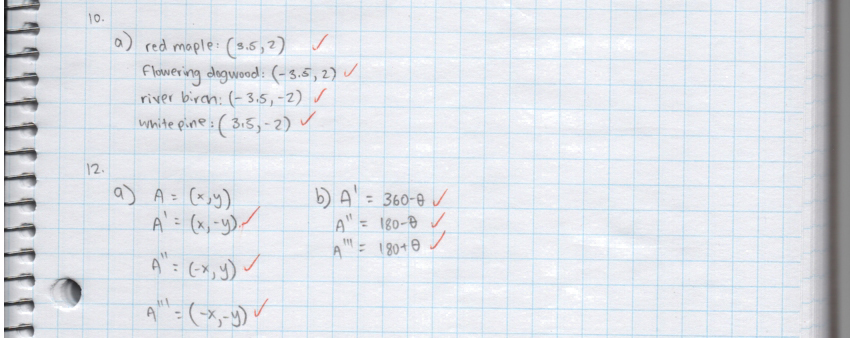 10.
a) red maple: (3.5, 2) ✓
Flowering dogwood: (-3.5, 2) ✓
river birch: (-3.5, -2) ✓
white pine: (3.5, -2) ✓
12.
a) A = (x, y)
A' = (x, -y) ✓
A'' = (-x, y) ✓
A''' = (-x, -y) ✓
b) A' = 360-θ ✓
A'' = 180-θ ✓
A''' = 180+θ ✓